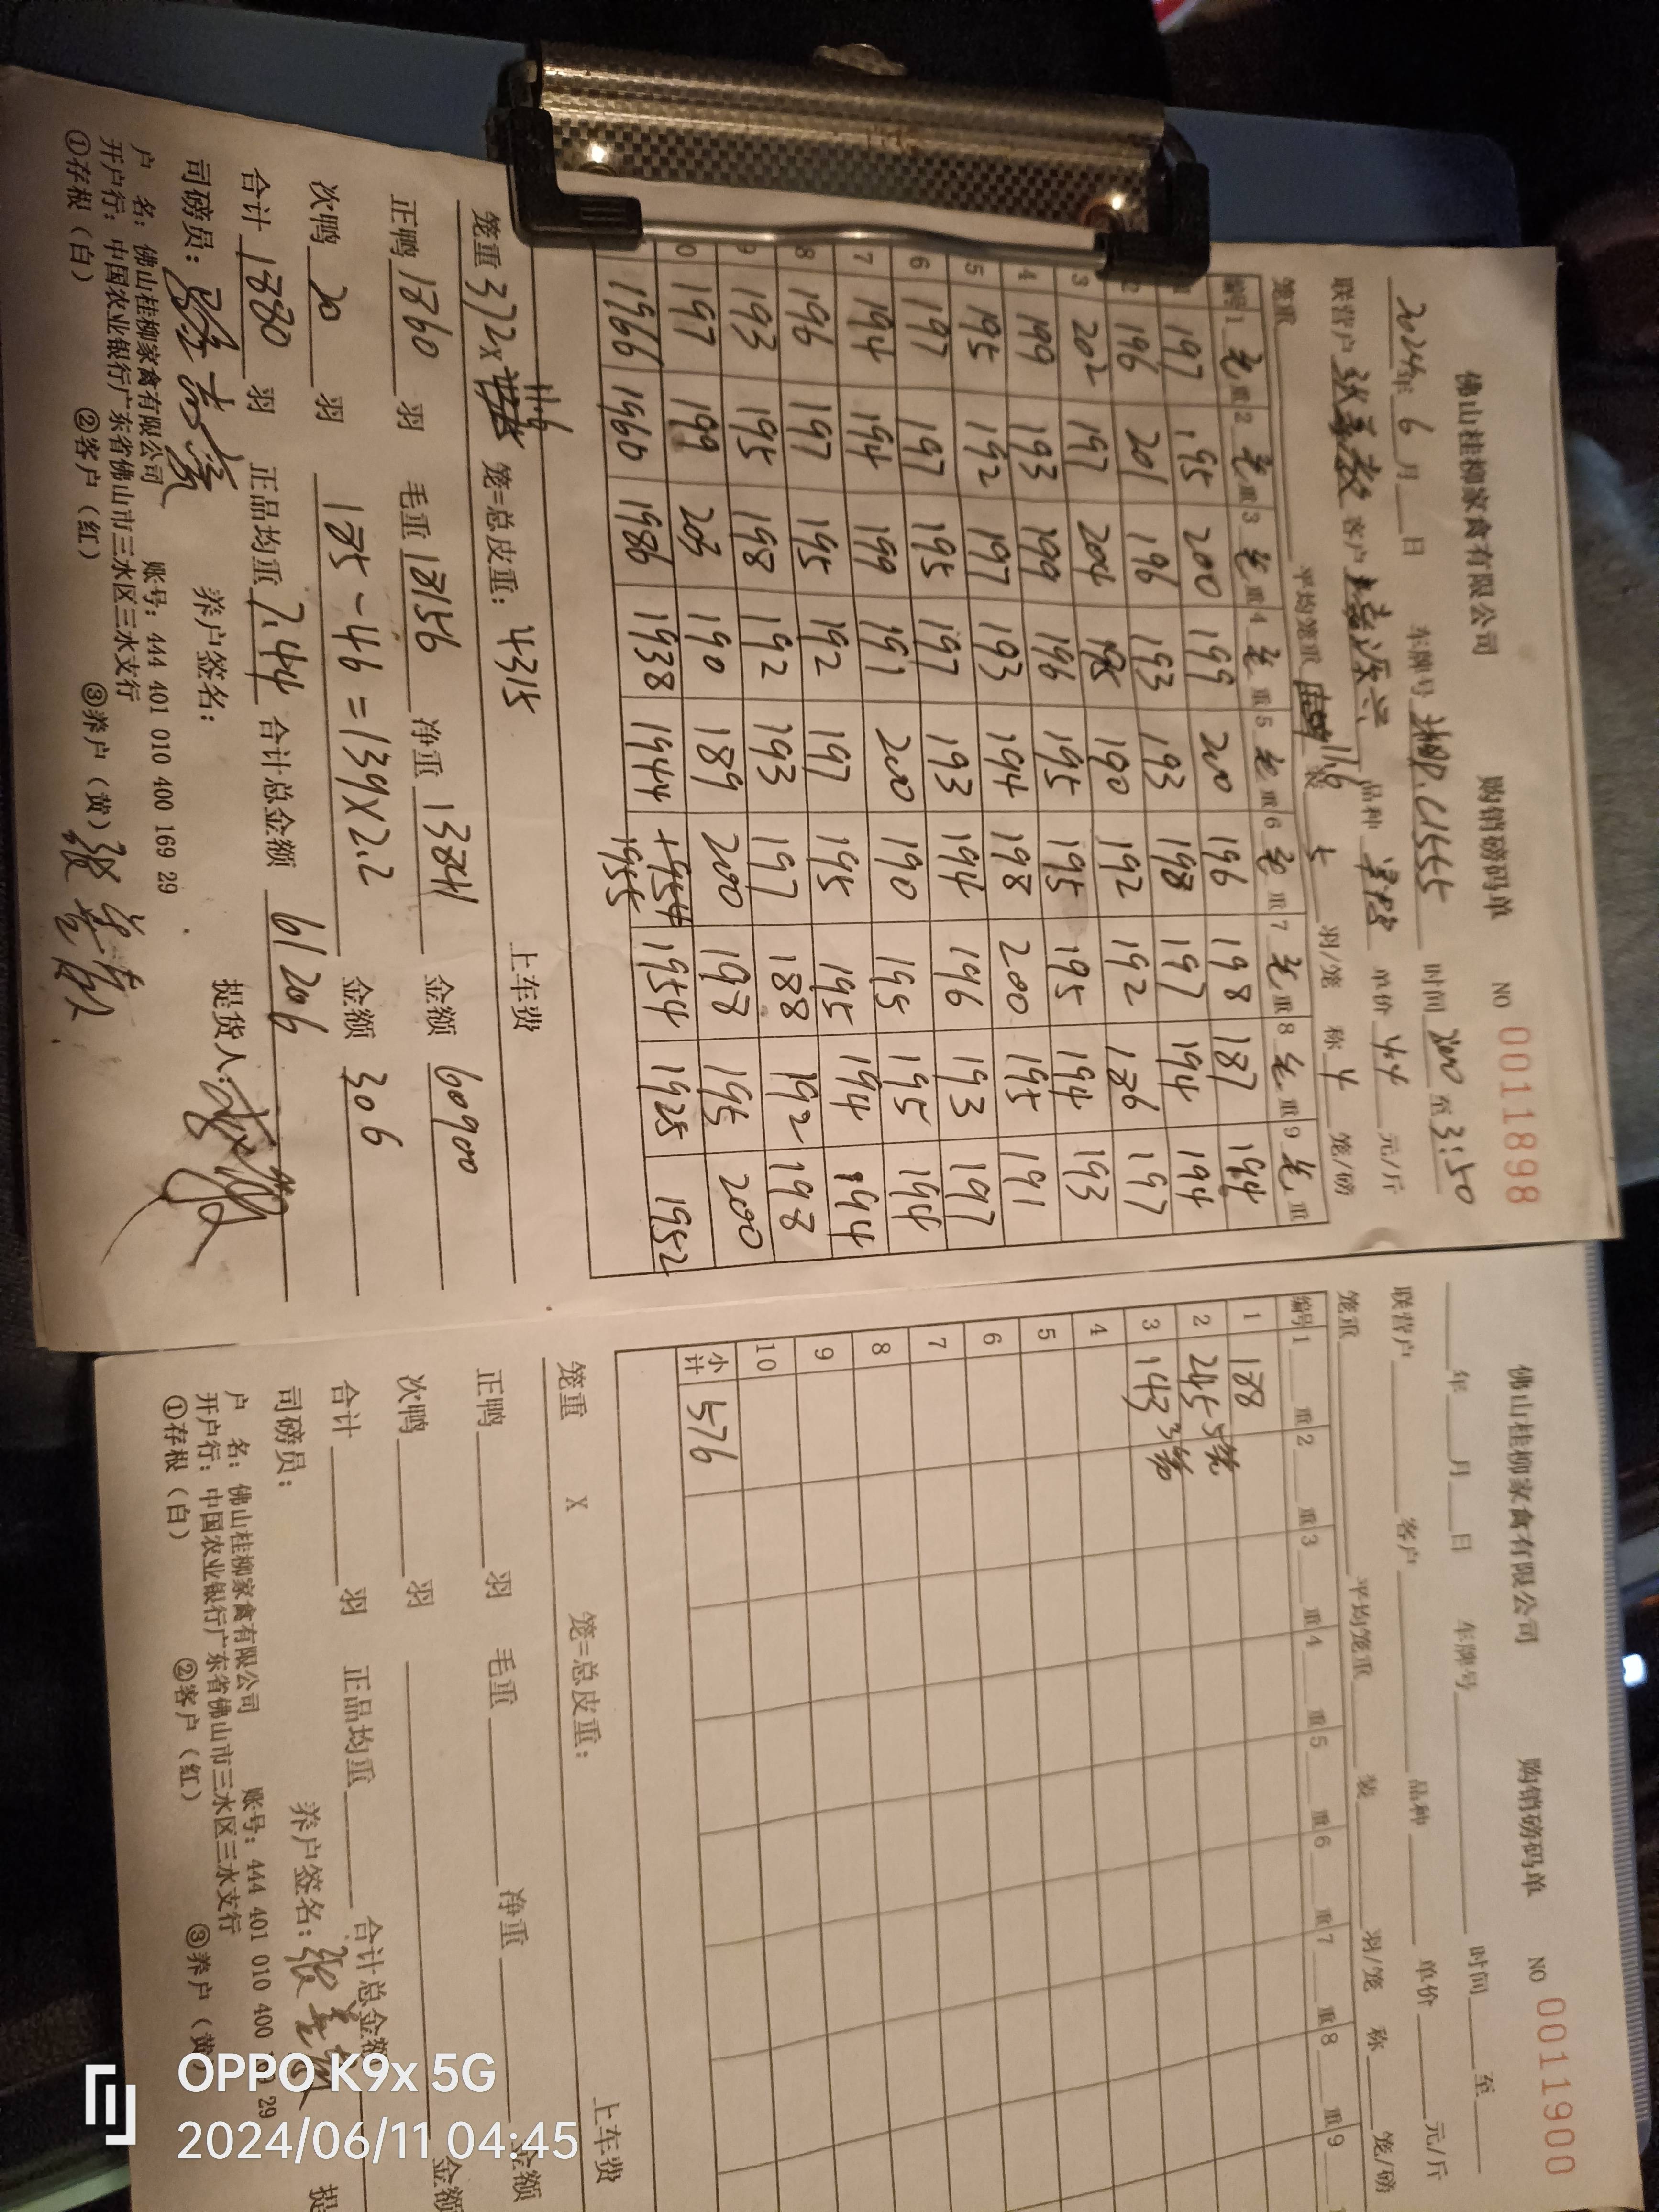 佛山桂柳家禽有限公司 购销磅码单 NO 0011898
2024年 6 月 日 车牌号 时间 2:00 至 3:50
联营户 客户 品种 单价 4.4 元/斤
笼重 平均笼重 11.6 装 5 羽/笼 称 4 笼/磅
编号 1 毛重 2 毛重 3 毛重 4 毛重 5 毛重 6 毛重 7 毛重 8 毛重 9 毛重
1 197 195 200 199 200 196 198 187 194
2 196 201 196 193 193 198 197 194 194
3 202 197 204 195 190 192 192 186 197
4 199 193 199 196 195 195 195 194 193
5 195 192 197 193 194 198 200 195 191
6 197 197 195 197 193 194 196 193 197
7 194 194 199 191 200 190 195 195 194
8 196 197 195 192 197 195 195 194 194
9 193 195 198 192 193 197 188 192 198
10 197 199 203 190 189 200 198 195 200
1966 1960 1986 1938 1944 1955 1954 1925 1952
笼重 372x 11.6 笼=总皮重: 4315 上车费
正鸭 1860 羽 毛重 18156 净重 13841 金额 60900
次鸭 20 羽 185-46=139X2.2 金额 306
合计 1880 羽 正品均重 7.44 合计总金额 61206
司磅员: 养户签名: 提货人:
户 名: 佛山桂柳家禽有限公司 账号: 444 401 010 400 169 29
开户行: 中国农业银行广东省佛山市三水区三水支行
①存根(白) ②客户(红) ③养户(黄)
佛山桂柳家禽有限公司 购销磅码单 NO 0011900
年 月 日 车牌号 时间 至
联营户 客户 品种 单价 元/斤
笼重 平均笼重 装 羽/笼 称 笼/磅
编号 1 重 2 重 3 重 4 重 5 重 6 重 7 重 8 重 9
1 188
2 245 5笼
3 143 3笼
4
5
6
7
8
9
10
小计 576
笼重 X 笼=总皮重: 上车费
正鸭 羽 毛重 净重 金额
次鸭 羽 金额
合计 羽 正品均重 合计总金额
司磅员: 养户签名: 提
户 名: 佛山桂柳家禽有限公司 账号: 444 401 010 400 169 29
开户行: 中国农业银行广东省佛山市三水区三水支行
①存根(白) ②客户(红) ③养户(黄)
OPPO K9x 5G
2024/06/11 04:45